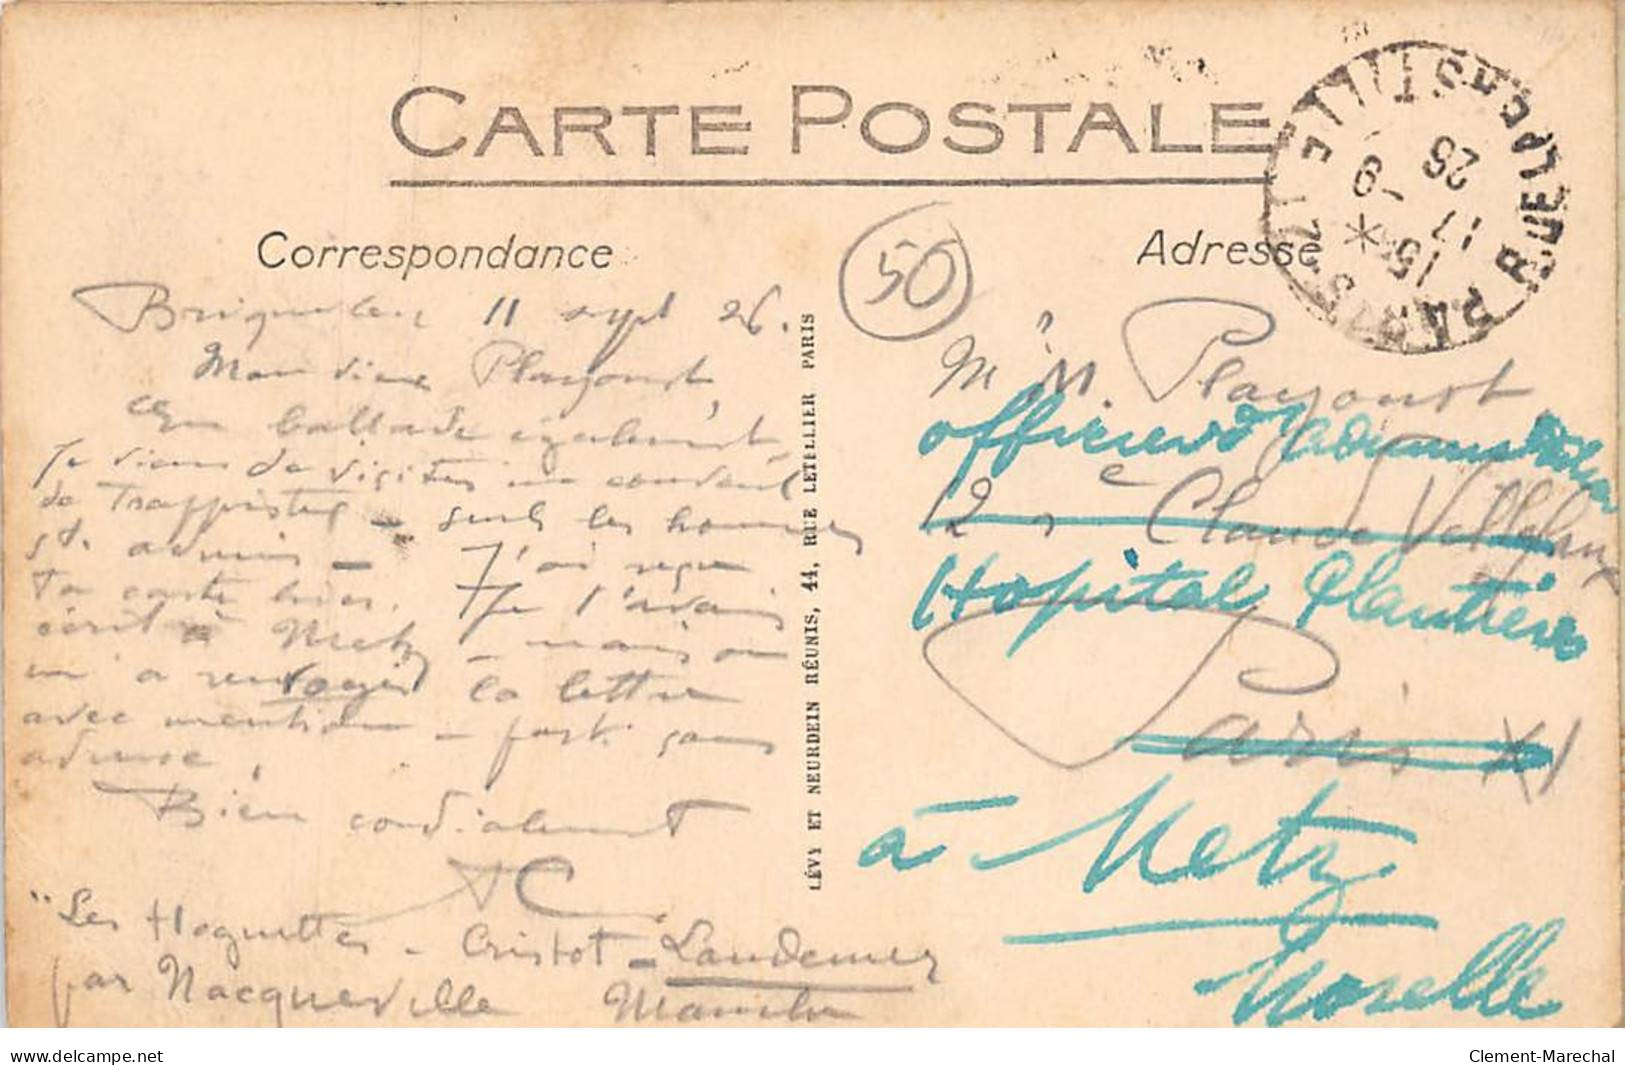 CARTE POSTALE
Correspondance
Adresse
50
PARIS
15
17 - 9
26
11 sept 26.
Mon vieux Playoust,
En ballade également,
Je viens de visiter un couvent
de Trappistes - seuls les hommes
st. admis - J'ai reçu
Ta carte hier. Je t'avais
écrit à Metz - mais on
m'a renvoyé la lettre
avec mention - parti sans
adresse.
Bien cordialement
"Les Hoguettes - Cristot - Landemer
par Nacqueville Manche
LÉVY ET NEURDEIN RÉUNIS, 44, RUE LETELLIER PARIS
Mr M. Playoust
officier d'administration
12 r Claude
Hopital Plantières
Paris XI
à Metz
Moselle
www.delcampe.net
Clement-Marechal